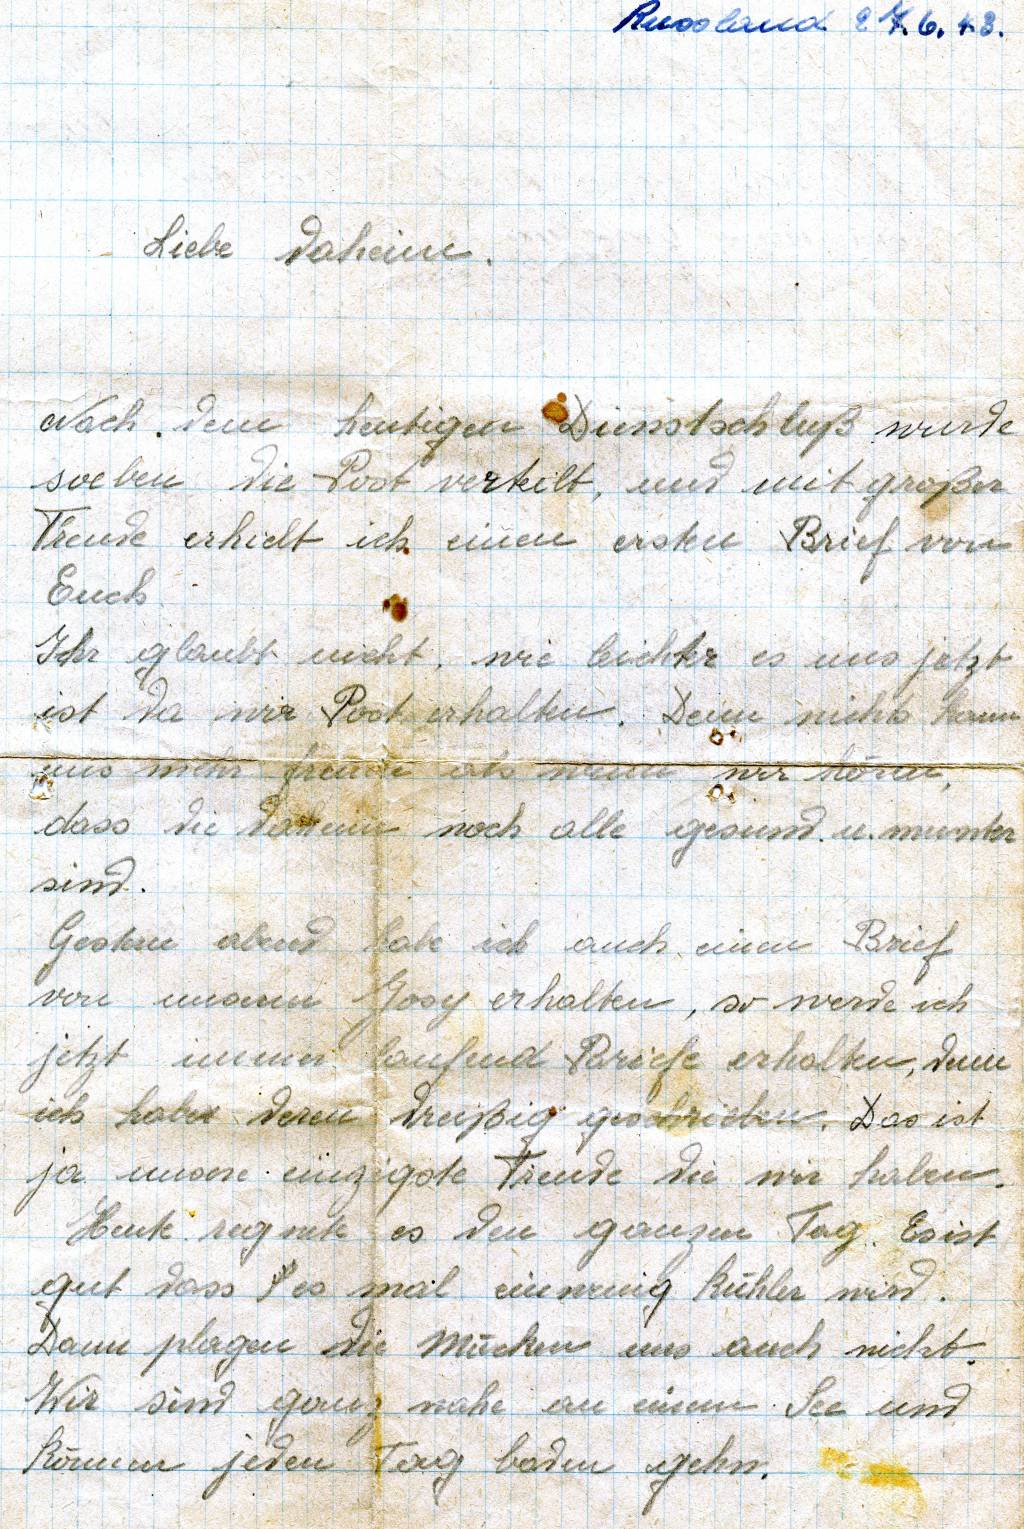 Russland 27.6.43.
Liebe daheim.
Nach dem heutigen Dienstschluß wurde
soeben die Post verteilt, und mit großer
Freude erhielt ich einen ersten Brief von
Euch
Ihr glaubt nicht, wie leichter es uns jetzt
ist da wir Post erhalten. Denn nichts kann
uns mehr freuen als wenn wir hören,
dass die daheim noch alle gesund u. munter
sind.
Gestern abend habe ich auch einen Brief
von unserm Josy erhalten, so werde ich
jetzt immer laufend Briefe erhalten, denn
ich habe deren dreißig geschrieben. Das ist
ja unsere einzigste Freude die wir haben.
Heute regnete es den ganzen Tag. Es ist
gut dass es mal einwenig kühler wird.
Dann plagen die Mücken uns auch nicht.
Wir sind ganz nahe an einem See und
können jeden Tag baden gehn.